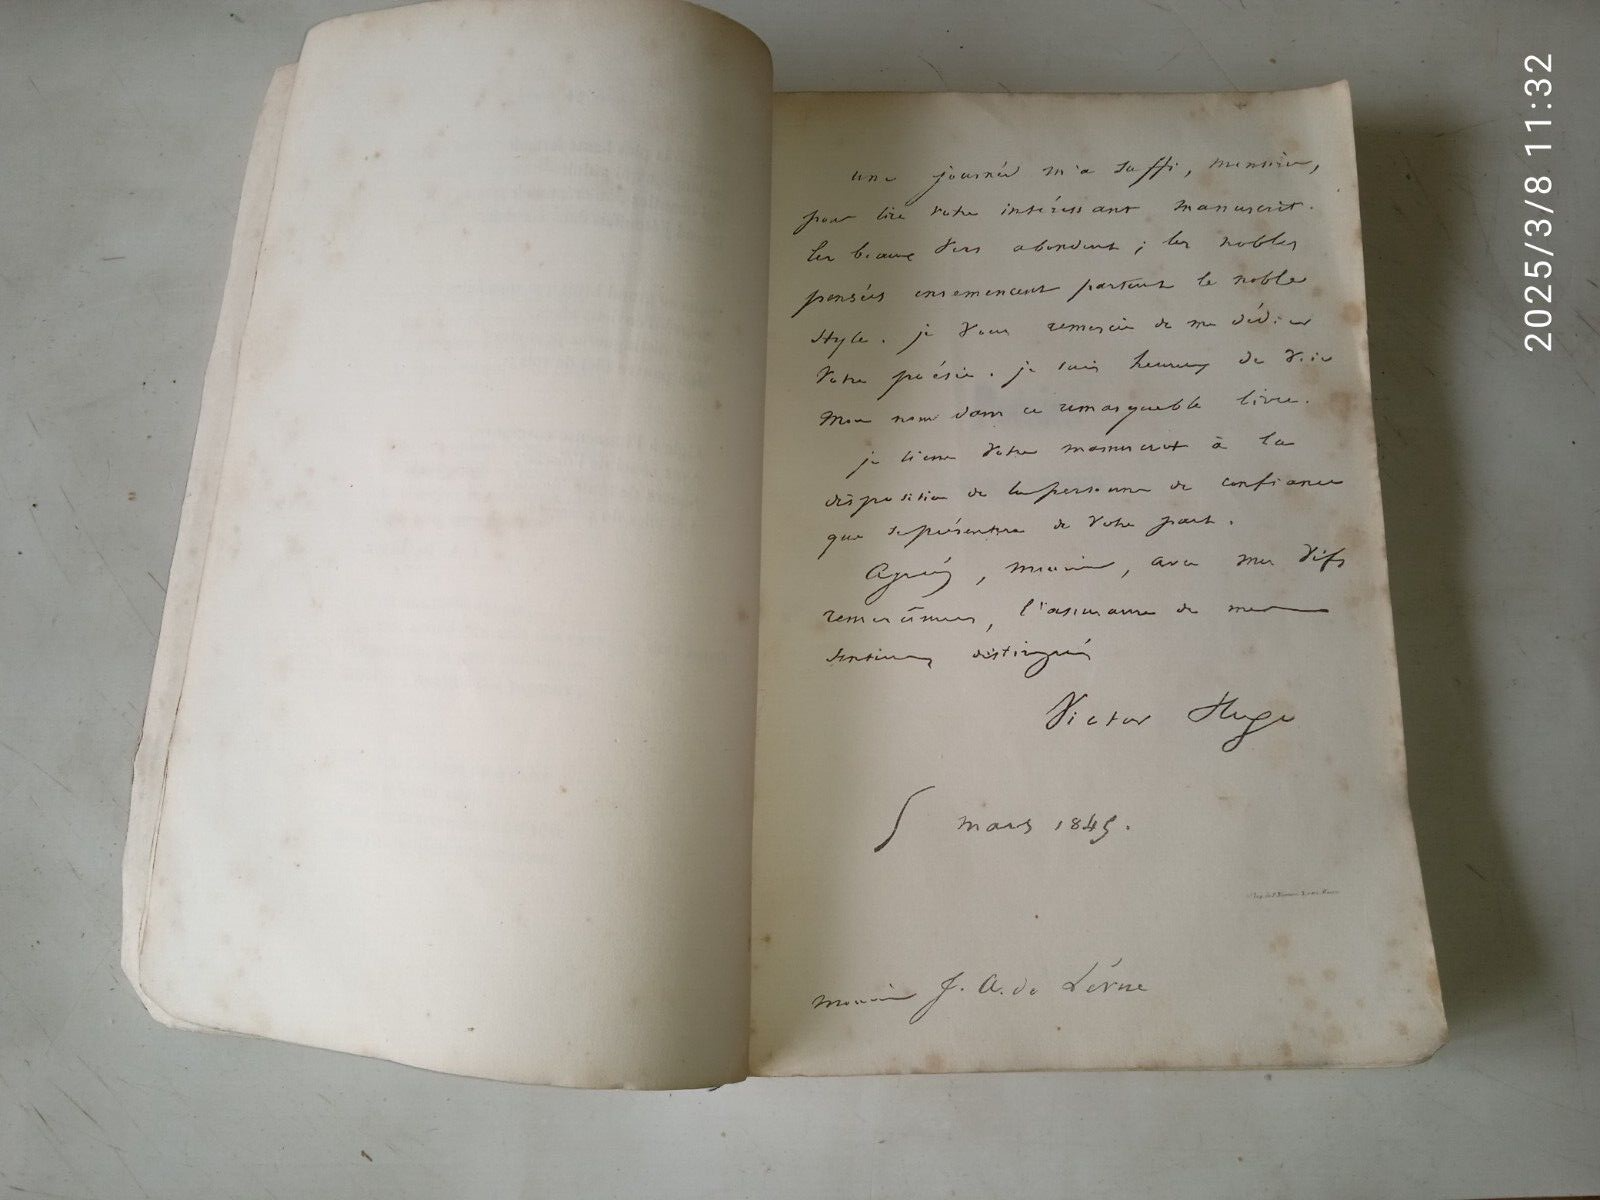 une journée m'a suffi, monsieur,
pour lire votre intéressant manuscrit.
les beaux vers abondent ; les nobles
pensées ensemencent partout le noble
style. je vous remercie de me dédier
votre poésie. je suis heureux de voir
mon nom dans ce remarquable livre.
je tiens votre manuscrit à la
disposition de la personne de confiance
que se présentera de votre part.
Agréez, monsieur, avec mes vifs
remerciments, l'assurance de mes
sentimens distingués
Victor Hugo
5 mars 1845.
monsieur J. A. de Lérue
2025/3/8 11:32